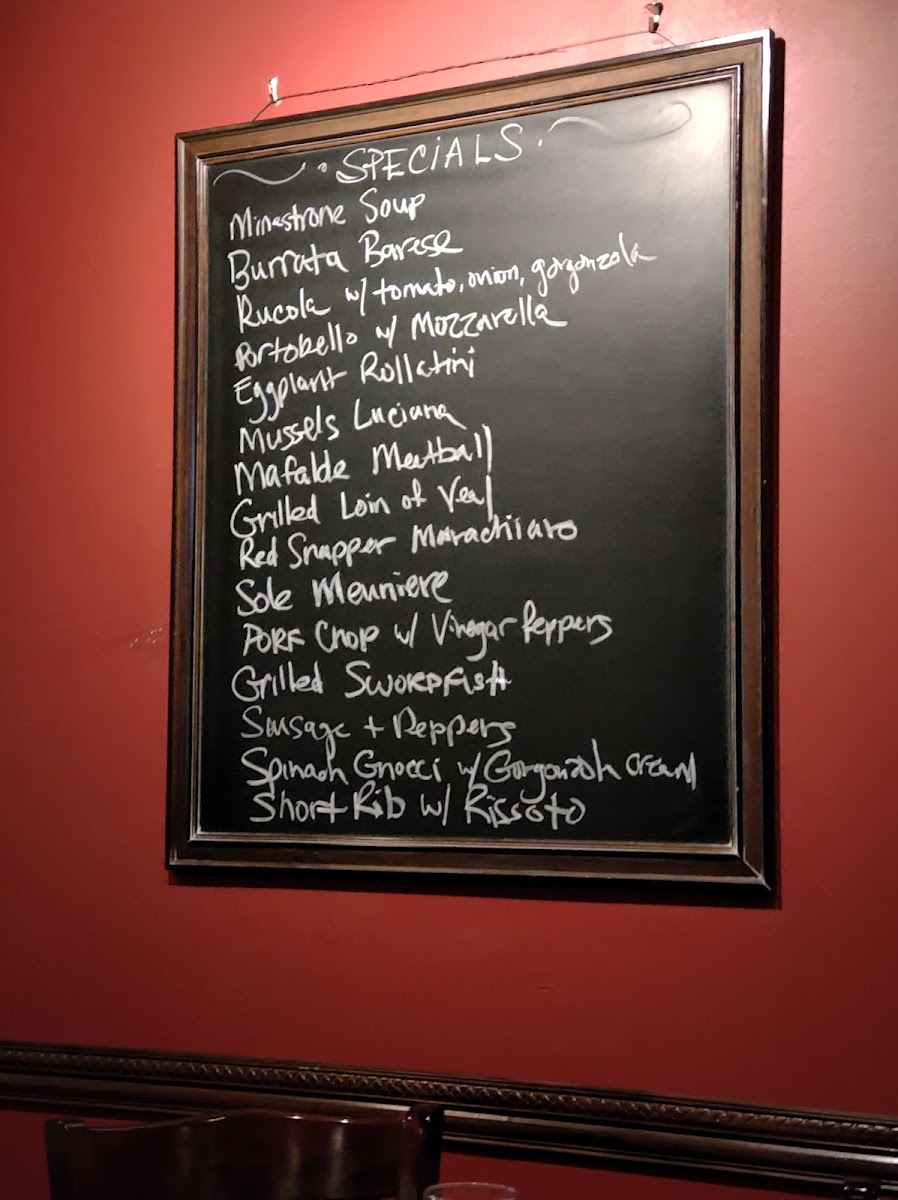 SPECIALS
Minestrone Soup
Burrata Barese
Rucola w/ tomato, onion, gorgonzola
Portobello w/ Mozzarella
Eggplant Rollatini
Mussels Luciana
Mafalde Meatball
Grilled Loin of Veal
Red Snapper Marachiaro
Sole Meuniere
Pork Chop w/ Vinegar Peppers
Grilled SWORDFISH
Sausage + Peppers
Spinach Gnocci w/ Gorgonzola cream
Short Rib w/ Rissoto